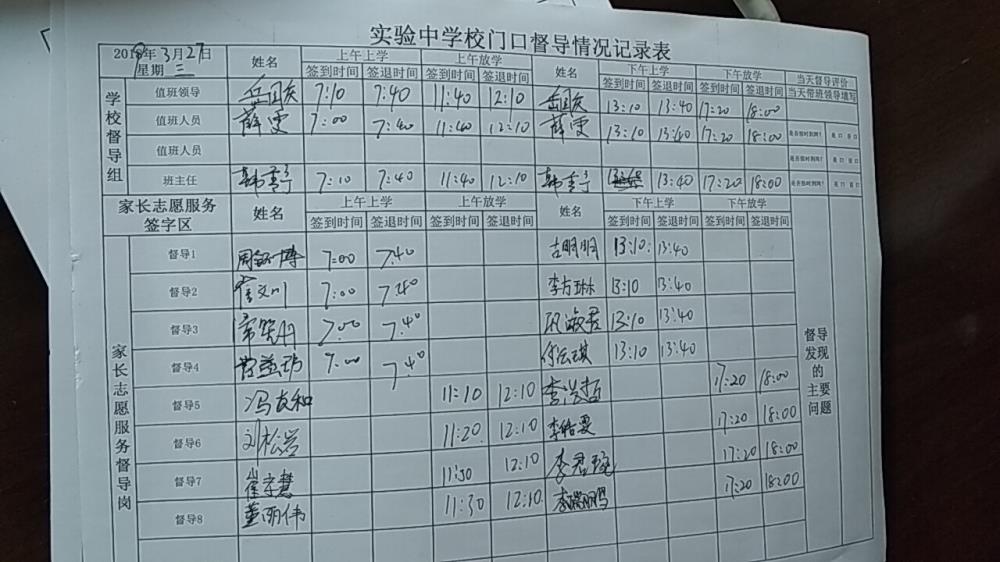 实验中学校门口督导情况记录表
2019年3月27日 星期三 姓名 上午上学 上午放学 姓名 下午上学 下午放学 当天督导评价
签到时间 签退时间 签到时间 签退时间 签到时间 签退时间 签到时间 签退时间 当天带班领导填写
学校督导组
值班领导 7:10 7:40 11:40 12:10 13:10 13:40 17:20 18:00
值班人员 薛雯 7:00 7:40 11:40 12:10 薛雯 13:10 13:40 17:20 18:00 是否按时到岗? 是 口 否 口
值班人员 是否按时到岗? 是 口 否 口
班主任 7:10 7:40 11:40 12:10 13:40 17:20 18:00 是否按时到岗? 是 口 否 口
家长志愿服务签字区 姓名 上午上学 上午放学 姓名 下午上学 下午放学
签到时间 签退时间 签到时间 签退时间 签到时间 签退时间 签到时间 签退时间
家长志愿服务督导岗
督导1 7:00 7:40 吉明明 13:10 13:40
督导2 7:00 7:40 李方琳 13:10 13:40
督导3 7:00 7:40 13:10 13:40
督导4 7:00 7:40 13:10 13:40
督导5 冯友和 11:10 12:10 17:20 18:00
督导6 刘松岩 11:20 12:10 17:20 18:00
督导7 11:30 12:10 17:20 18:00
督导8 董丽伟 11:30 12:10 17:20 18:00
督导发现的主要问题